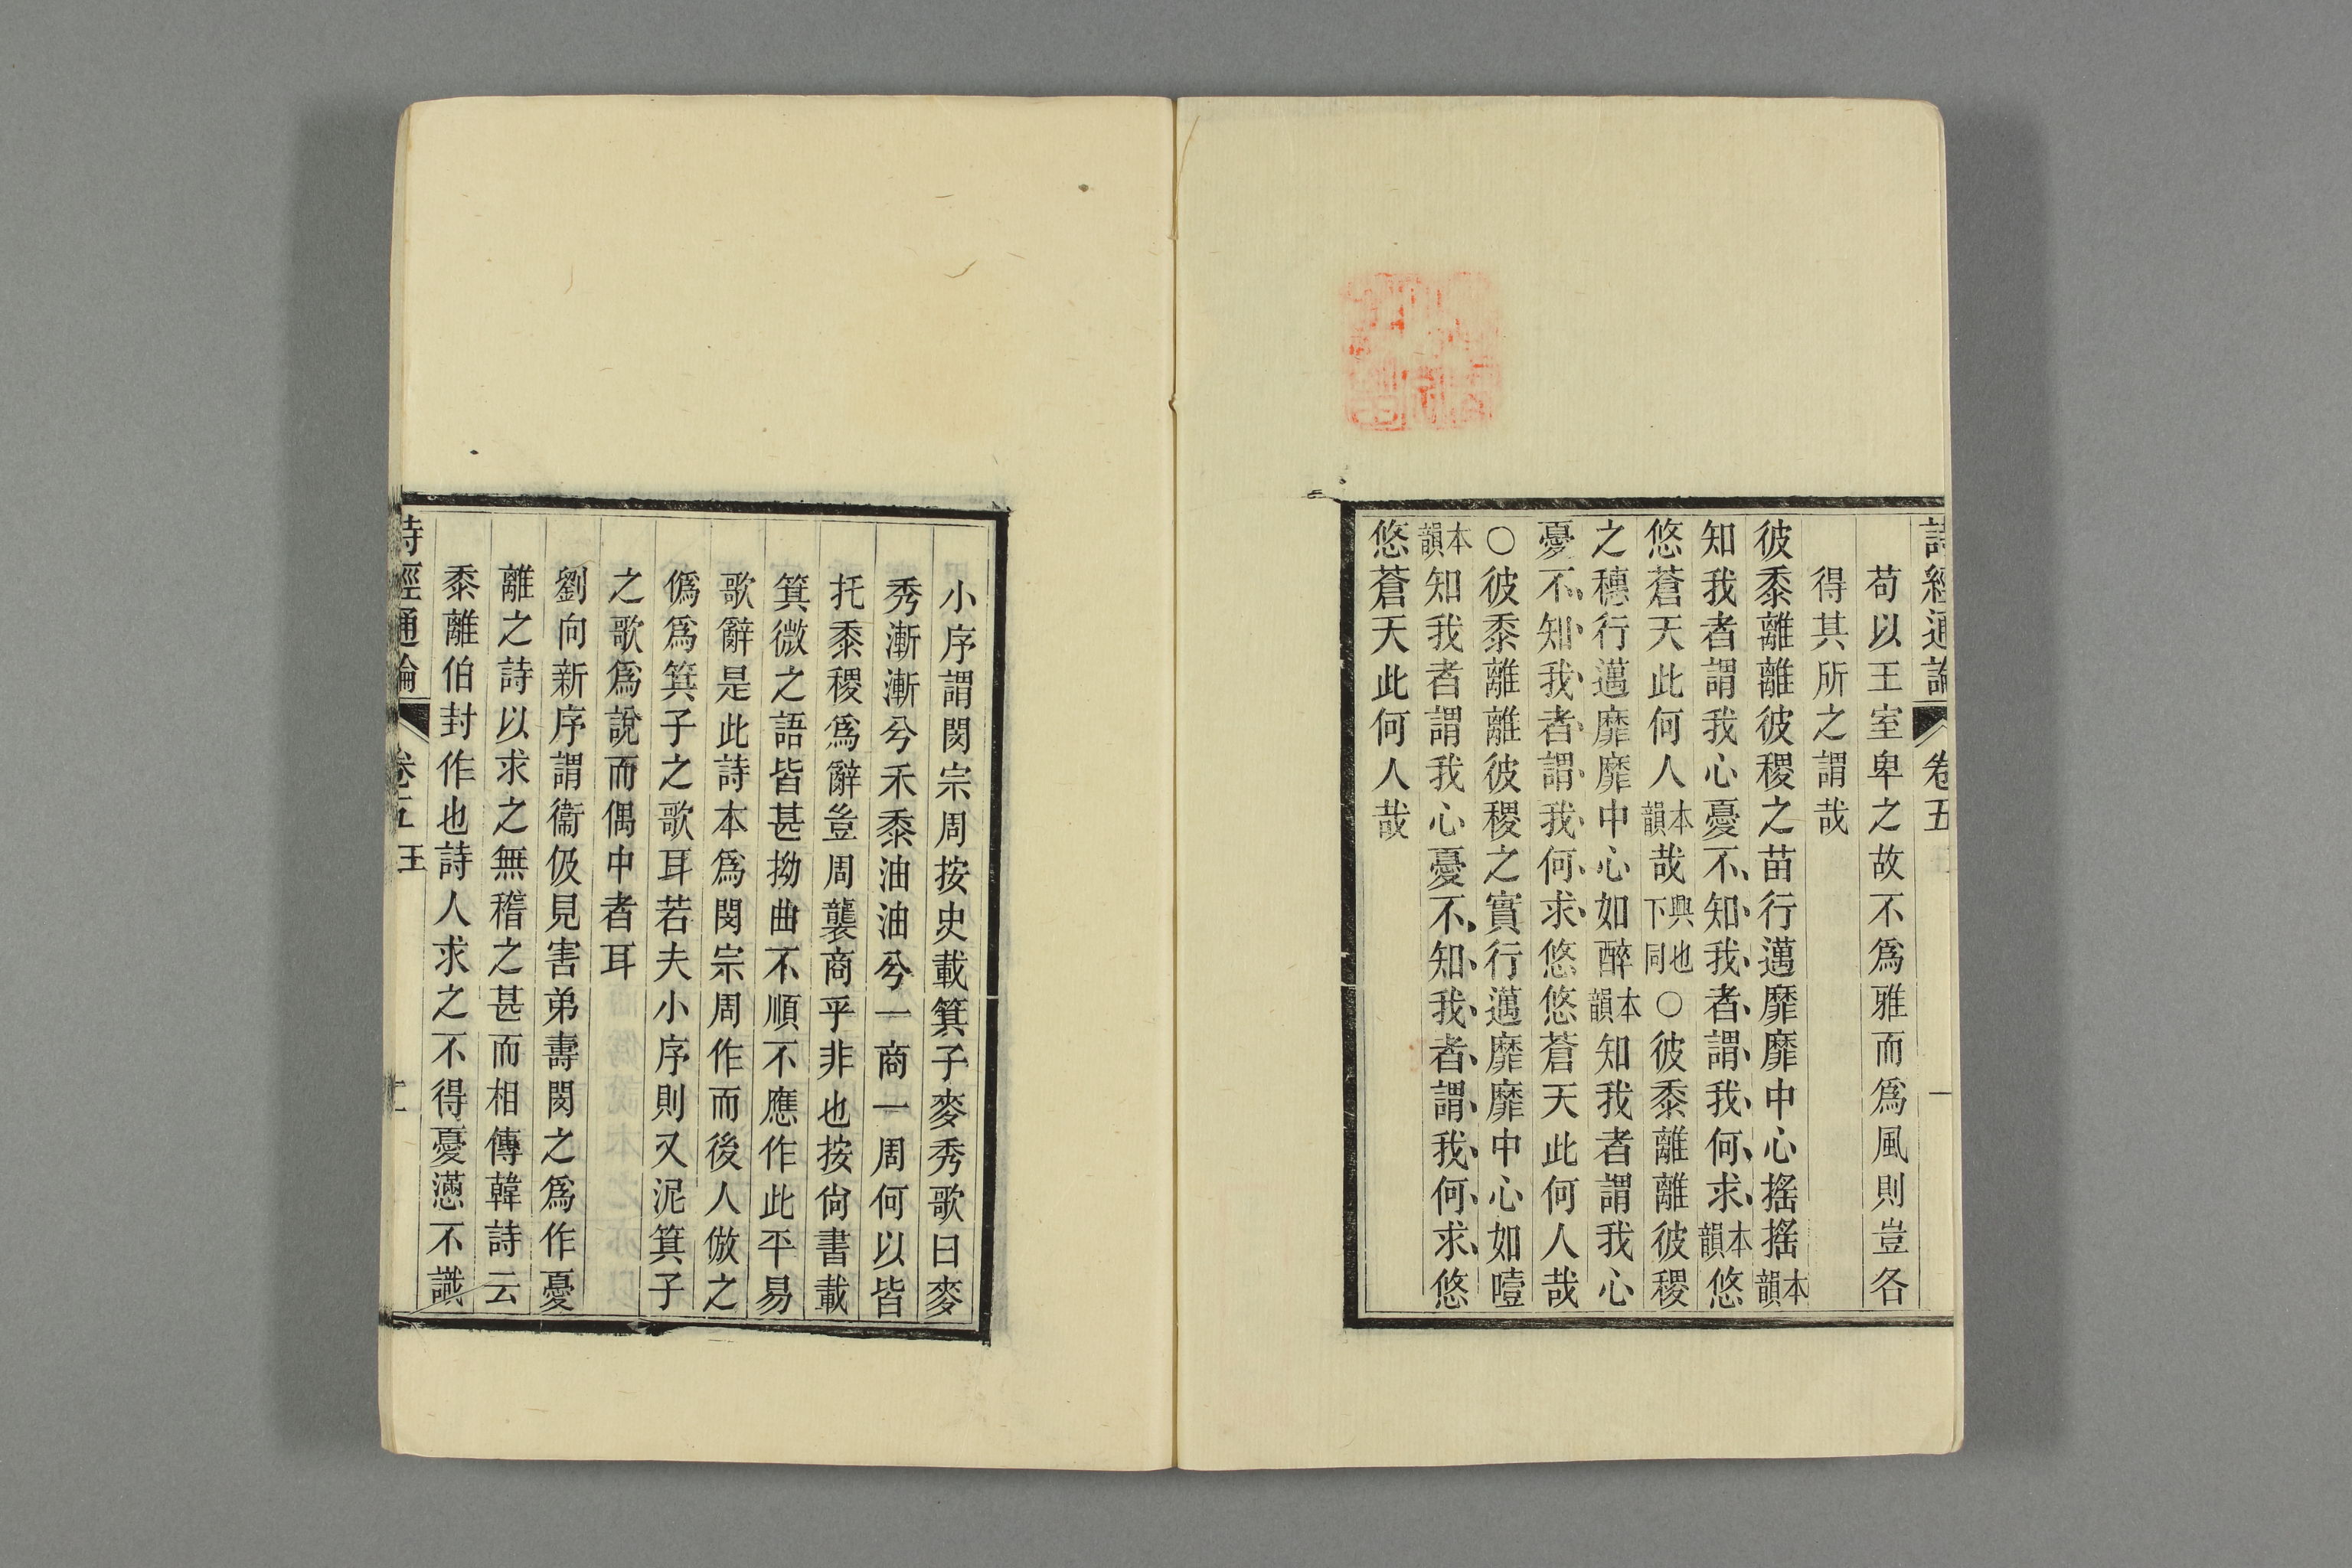 詩經通論 卷五 一
苟以王室卑之故不爲雅而爲風則豈各
得其所之謂哉
彼黍離離彼稷之苗行邁靡靡中心搖搖本韻
知我者謂我心憂不知我者謂我何求本韻悠
悠蒼天此何人本韻哉興也下同○彼黍離離彼稷
之穗行邁靡靡中心如醉本韻知我者謂我心
憂不知我者謂我何求悠悠蒼天此何人哉
○彼黍離離彼稷之實行邁靡靡中心如噎
本韻知我者謂我心憂不知我者謂我何求悠
悠蒼天此何人哉
小序謂閔宗周按史載箕子麥秀歌曰麥
秀漸漸兮禾黍油油兮一商一周何以皆
托黍稷爲辭豈周襲商乎非也按尙書載
箕微之語皆甚拗曲不順不應作此平易
歌辭是此詩本爲閔宗周作而後人倣之
僞爲箕子之歌耳若夫小序則又泥箕子
之歌爲說而偶中者耳
劉向新序謂衞伋見害弟壽閔之爲作憂
離之詩以求之無稽之甚而相傳韓詩云
黍離伯封作也詩人求之不得憂懣不識
詩經通論 卷五 王 二